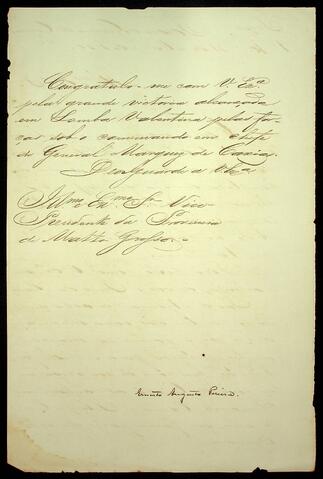 Congratulo-me com V. Exª
pela grande victoria alcançada
em Lomba Valentina pelas for-
ças sob o commando em chefe
do General Marquez de Caxias.
Deos Guarde a V. Exª
Illmo Exmo Sr Vice
Presidente da Provincia
de Matto Grosso
Ernesto Augusto Pereira.